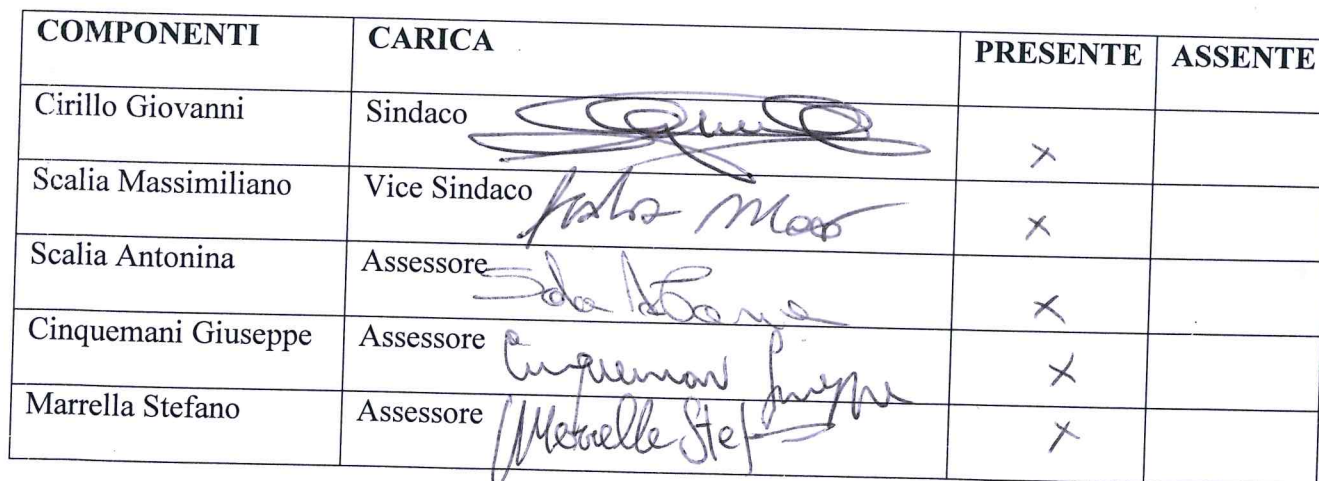 COMPONENTI CARICA PRESENTE ASSENTE
Cirillo Giovanni Sindaco x
Scalia Massimiliano Vice Sindaco x
Scalia Antonina Assessore x
Cinquemani Giuseppe Assessore Cinquemani Giuseppe x
Marrella Stefano Assessore Marrella Stef x